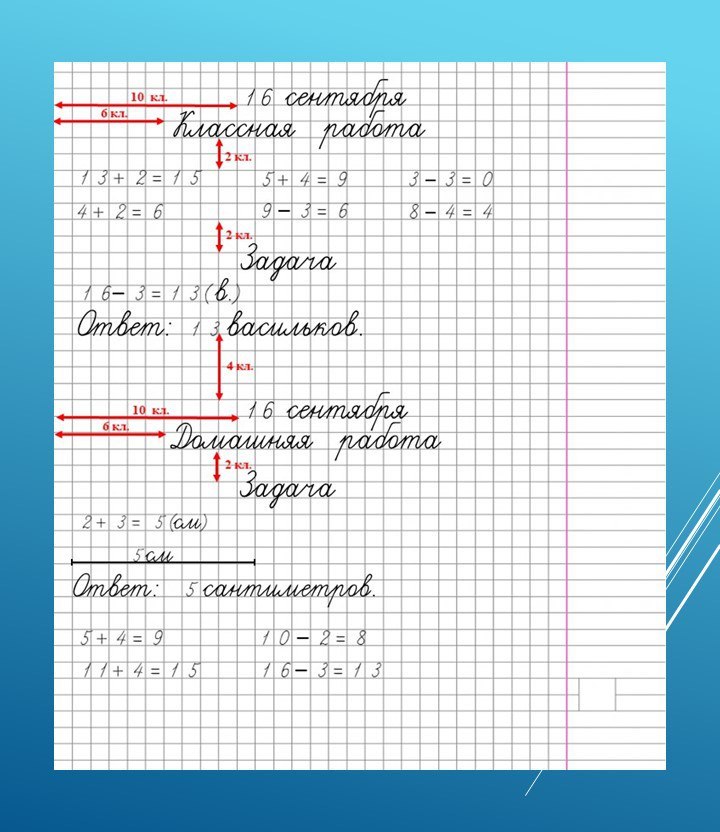 10 кл. 16 сентября
6 кл. Классная работа
2 кл.
13 + 2 = 15 5 + 4 = 9 3 – 3 = 0
4 + 2 = 6 9 – 3 = 6 8 – 4 = 4
2 кл.
Задача
16 – 3 = 13 (в.)
Ответ: 13 васильков.
4 кл.
10 кл. 16 сентября
6 кл. Домашняя работа
2 кл.
Задача
2 + 3 = 5 (см)
5 см
Ответ: 5 сантиметров.
5 + 4 = 9 10 – 2 = 8
11 + 4 = 15 16 – 3 = 13